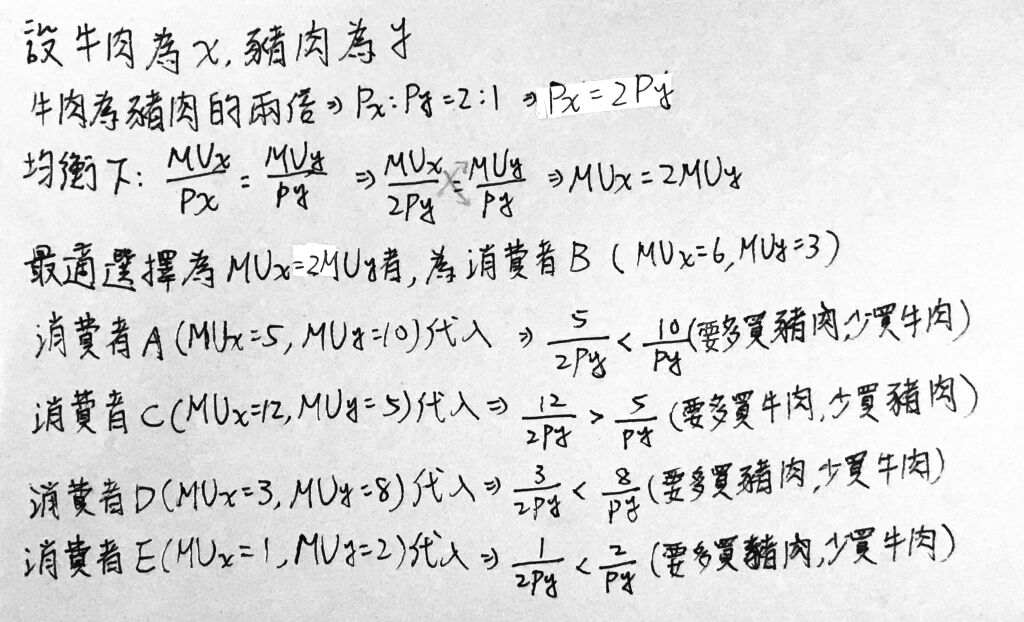 設牛肉為x,豬肉為y
牛肉為豬肉的兩倍⇒Px:Py=2:1 ⇒Px=2Py
均衡下: MUx/Px = MUy/Py ⇒ MUx/2Py = MUy/Py ⇒MUx=2MUy
最適選擇為MUx=2MUy者,為消費者B (MUx=6,MUy=3)
消費者A(MUx=5,MUy=10)代入 ⇒ 5/2Py < 10/Py (要多買豬肉,少買牛肉)
消費者C(MUx=12,MUy=5)代入⇒ 12/2Py > 5/Py (要多買牛肉,少買豬肉)
消費者D(MUx=3,MUy=8)代入⇒ 3/2Py < 8/Py (要多買豬肉,少買牛肉)
消費者E(MUx=1,MUy=2)代入⇒ 1/2Py < 2/Py (要多買豬肉,少買牛肉)